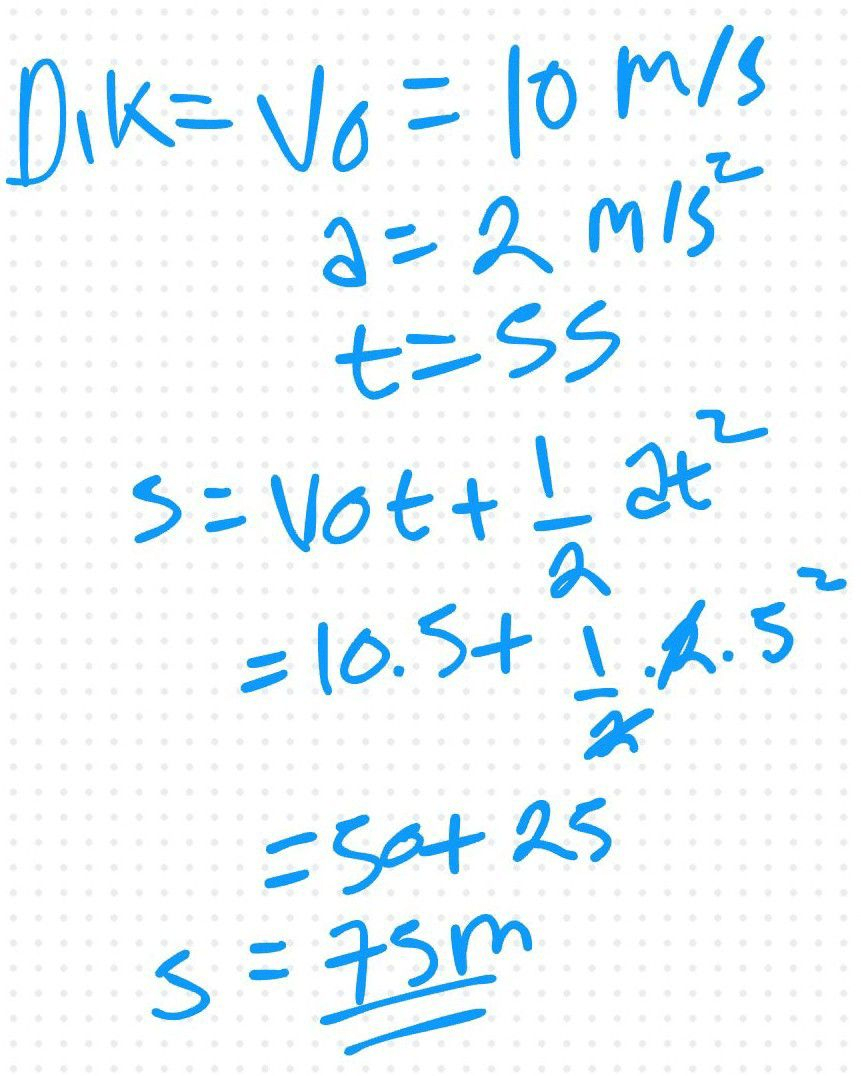 Dik= Vo = 10 m/s
a= 2 m/s²
t= 5s
s= Vot + 1/2 at²
= 10.5+ 1/2 .2.5²
= 50+ 25
s = 75m